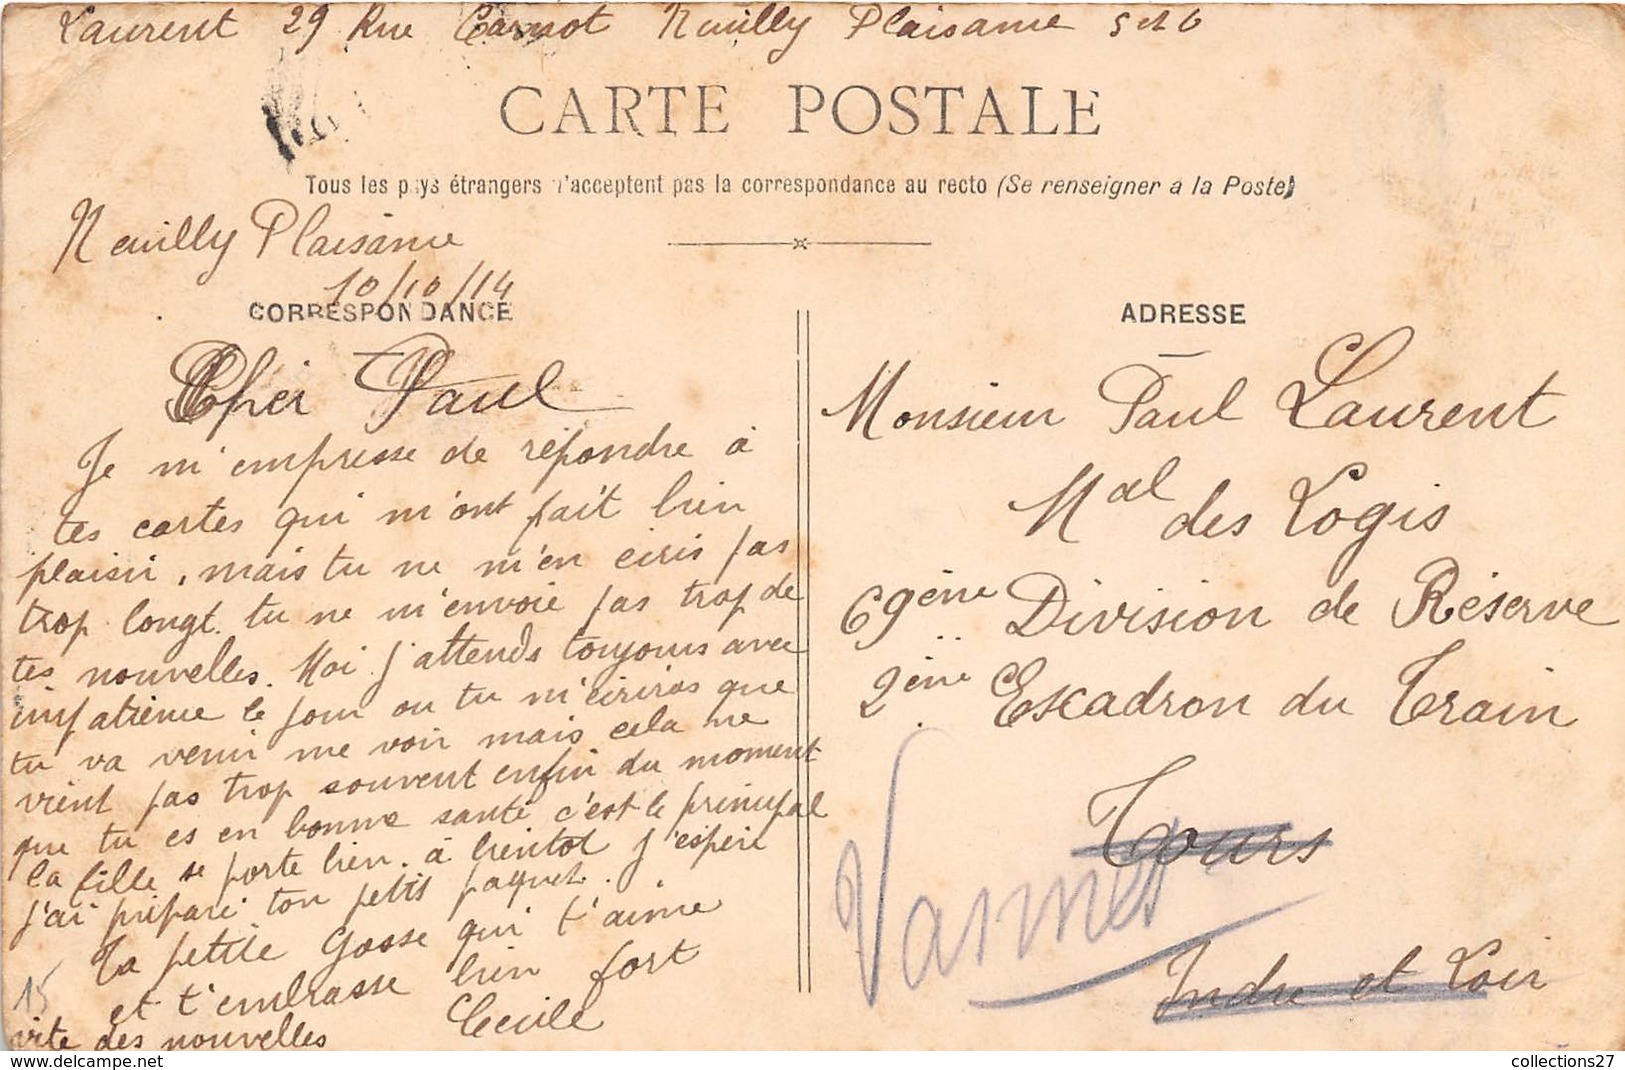 Laurent 29 Rue Carnot Neuilly Plaisance S et O
CARTE POSTALE
Tous les pays étrangers n'acceptent pas la correspondance au recto (Se renseigner à la Poste)
Neuilly Plaisance
10/10/14
CORRESPONDANCE
Cher Paul
Je m'empresse de répondre à
tes cartes qui m'ont fait bien
plaisir, mais tu ne m'en ecris pas
trop longt. tu ne m'envoie pas trop de
tes nouvelles. Moi j'attends toujours avec
impatience le jour ou tu m'ecriras que
tu va venir me voir mais cela ne
vient pas trop souvent enfin du moment
que tu es en bonne santé c'est le principal
la fille se porte bien. à bientot j'espère
j'ai préparé ton petit paquet.
Ta petite Gosse qui t'aime
et t'embrasse bien fort
Cecile
vite des nouvelles
15
ADRESSE
Monsieur Paul Laurent
Mal des Logis
69ème Division de Réserve
2ème Escadron du Train
Tours
Vannes
Indre et Loir
collections27